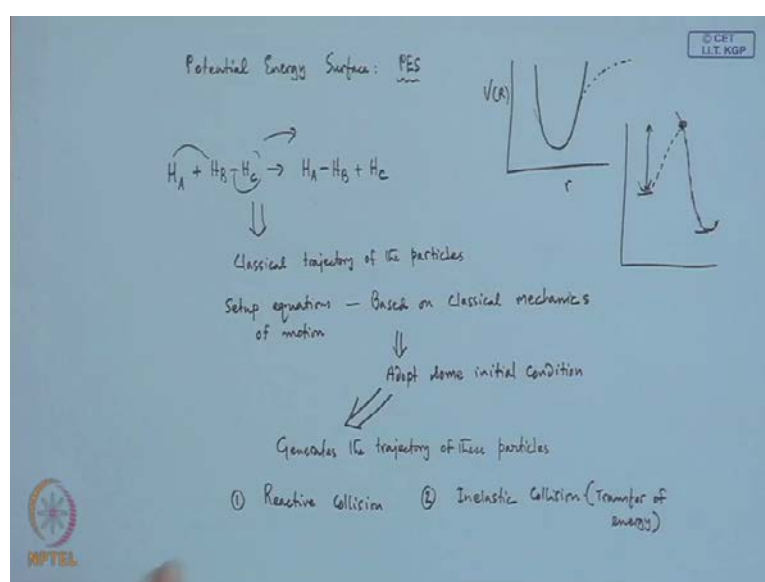 © CET
I.I.T. KGP
Potential Energy Surface: PES
V(R)
r
H_A + H_B - H_C → H_A - H_B + H_C
⇓
Classical trajectory of the particles
Setup equations — Based on classical mechanics
of motion
⇓
Adopt some initial condition
Generates the trajectory of these particles
① Reactive Collision ② Inelastic Collision (Transfer of
energy)
NPTEL